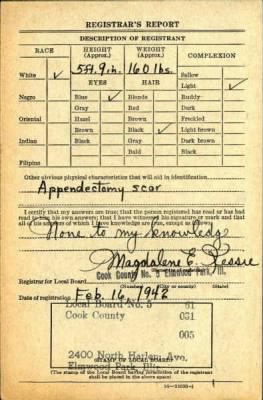 REGISTRAR'S REPORT
DESCRIPTION OF REGISTRANT
RACE HEIGHT (Approx.) WEIGHT (Approx.) COMPLEXION
White ✓ 5 ft. 9 in. 160 lbs. Sallow
EYES HAIR Light ✓
Negro Blue ✓ Blonde Ruddy
Gray Red Dark
Oriental Hazel Brown Freckled
Brown Black ✓ Light brown
Indian Black Gray Dark brown
Bald Black
Filipino
Other obvious physical characteristics that will aid in identification
Appendectomy scar
I certify that my answers are true; that the person registered has read or has had
read to him his own answers; that I have witnessed his signature or mark and that
all of his answers of which I have knowledge are true, except as noted:
None to my knowledge
Magdalene E. Ressie
Registrar for Local Board Cook County No. 5 Elmwood Park, Ill.
Date of registration Feb. 16, 1942
Local Board No. 5 61
Cook County 031
005
2400 North Harlem Ave.
Elmwood Park, Ill.
(STAMP OF LOCAL BOARD)
(The stamp of the Local Board having jurisdiction of the registrant
shall be placed in the above space)